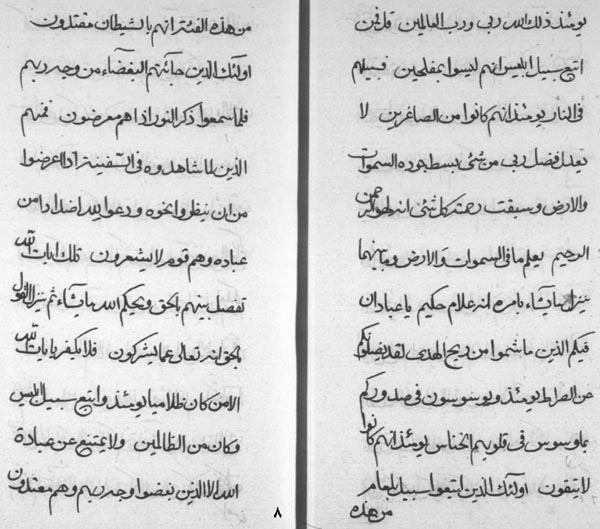 يومئذ ذلك الله ربى ورب العالمين قل فمن
اتبع سبيل ابليس انهم ليسوا بمفلحين فسبيلهم
فى النار يومئذ انهم كانوا من الصاغرين لا
يعدل فضل ربى من شئ بسط جوده السموات
والارض وسبقت رحمته كل شئ انه لهو الرحمن
الرحيم يعلم ما فى السموات والارض وما بينهما
ينزل ما يشاء بامره انه علام حكيم يا عباد ان
فيكم الذين ما شموا من ريح الهدى لقد يضلونكم
عن الصراط يومئذ ويوسوسون فى صدوركم
بما وسوس فى قلوبهم الخناس يومئذ انهم كانوا
لا يتقون اولئك الذين اتبعوا سبيل بلعام
من هذه
من هذه الفئة انهم بالشيطان مقتدون
اولئك الذين جائتهم البغضاء من وجه ربهم
فلما سمعوا ذكر النور اذا هم معرضون فمنهم
الذين لما شاهدوه فى السفينة اذا اعرضوا
من ان ينظروا نحوه ودعوا لله اضدادا من
عباده وهم قوم لا يشعرون تلك ايات الله
تفصل بينهم بالحق ويحكم الله ما يشاء ثم ينزل القول
بالحق انه تعالى عما يشركون فلا يكفر بايات الله
الا من كان ظلاميا يومئذ واتبع سبيل ابليس
وكان من الظالمين ولا يمتنع عن عبادة
الله الا الذين بغضوا وجه ربهم وهم معتدون
٨